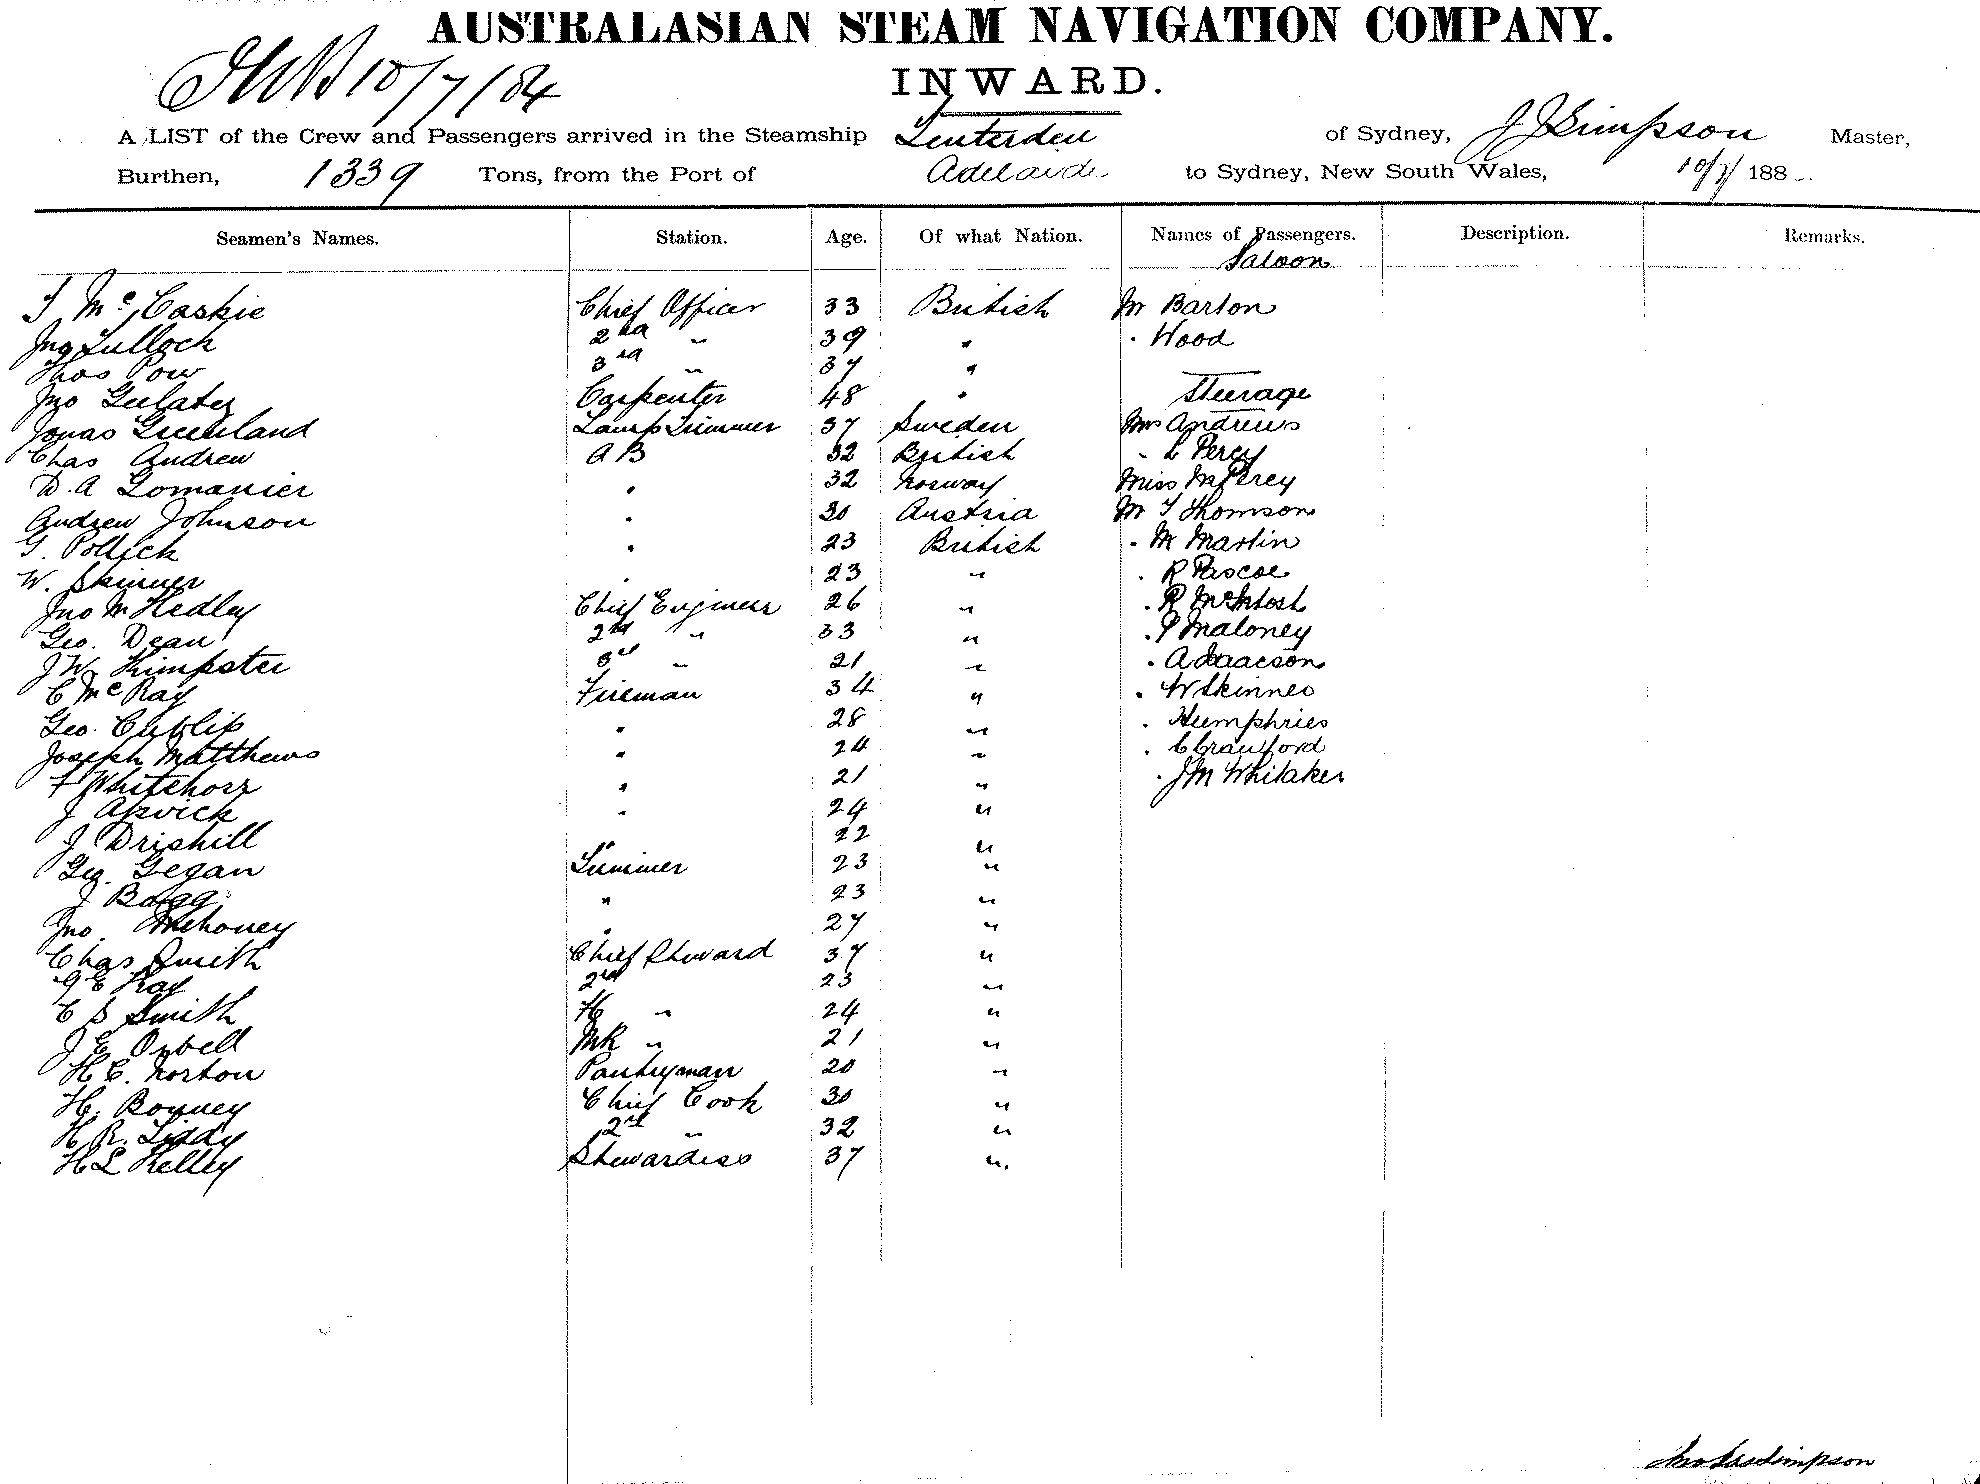 AUSTRALASIAN STEAM NAVIGATION COMPANY.
10/7/84
INWARD.
A LIST of the Crew and Passengers arrived in the Steamship Tenterden of Sydney, J J Simpson Master,
Burthen, 1339 Tons, from the Port of Adelaide to Sydney, New South Wales, 10/7/ 188
Seamen's Names. Station. Age. Of what Nation. Names of Passengers. Description. Remarks.
Saloon
Mc Caskie Chief Officer 33 British Mr Barton
Jno Tulloch 2nd " 39 " . Wood
Thos Pow 3rd " 37 "
Jno Carpenter 48 " Steerage
Jonas Greenland Lamp Trimmer 37 Sweden Mrs Andrews
Chas Andrew A B 32 British " L Percy
D. A 32 Norway Miss M Percy
Andrew Johnson " 30 Austria Mr T Thomson
G. Pollick " 23 British . M Martin
W. Skinner " 23 " . R Pascoe
Jno M Hedley Chief Engineer 26 " . R McIntosh
Geo. Dean 2nd " 33 " . P Maloney
J W. Kimpster 3rd " 21 " . A Isaacson
C Mc Ray Fireman 34 " . W Skinner
Geo. " 28 " . Humphries
Joseph Matthews " 24 " . C Crawford
F Whitehorr " 21 " . J M Whitaker
J Apvick " 24 "
J Driskill " 22 "
Geo. Gegan Trimmer 23 "
J Bagg " 23 "
Jno. Mehoney " 27 "
Chas Smith Chief Steward 37 "
G E Kay 2nd 23 "
C S Smith " 24 "
J E Orbell " 21 "
H C. Norton Pantryman 20 "
H. Bonney Chief Cook 30 "
H R. Liddy 2nd " 32 "
H L Kelley Stewardess 37 "
Jno Jas Simpson